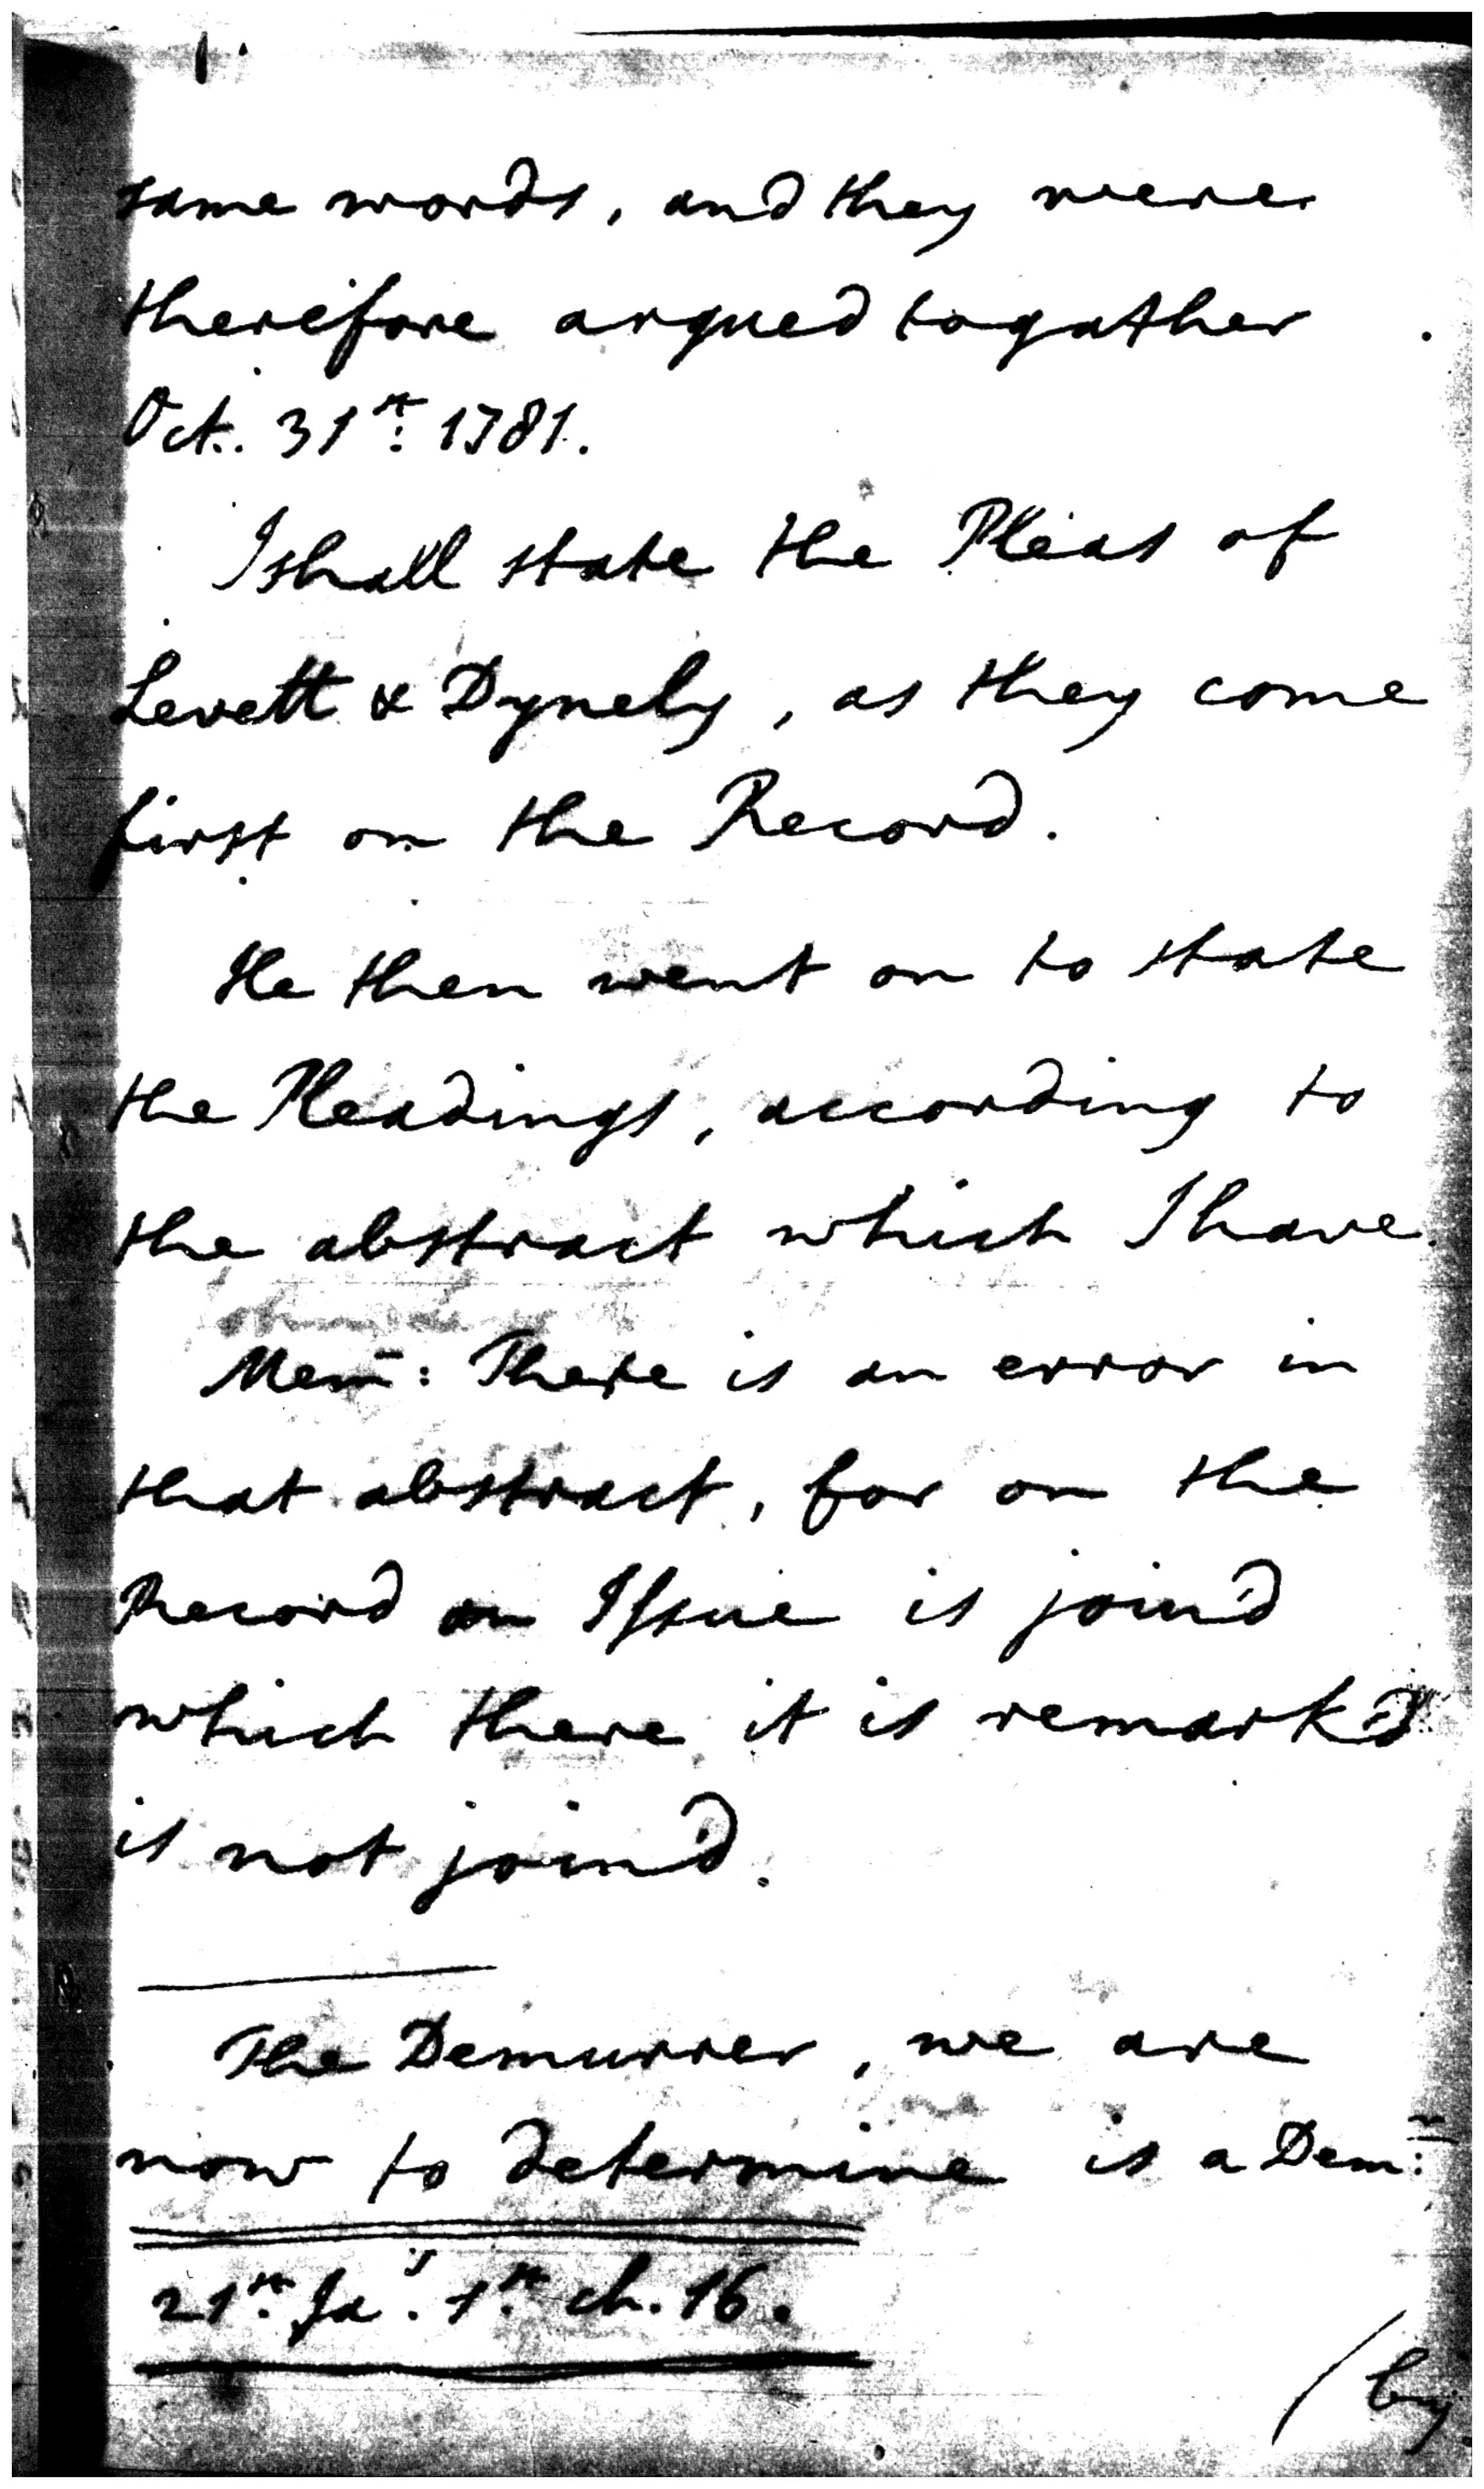 same words, and they were
therefore argued together
Oct. 31st: 1781.
I shall state the Pleas of
Levett & Dynely, as they come
first on the Record.
He then went on to state
the Pleadings, according to
the abstract which I have.
Mem: There is an error in
that abstract, for on the
Record an Issue is join'd
which there it is remark'd
is not join'd.
The Demurrer, we are
now to determine is a Demr:
21st. Jas. 1st. ch. 16.
(by